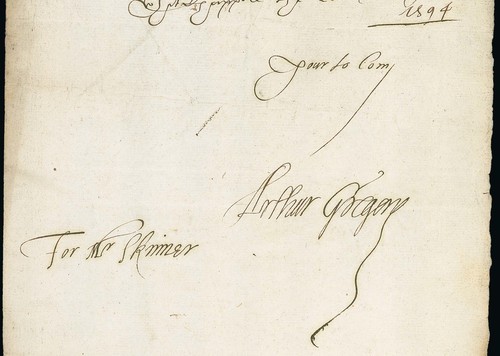 1594
Your to Com
Arthur Gregory
For Mr Skinner